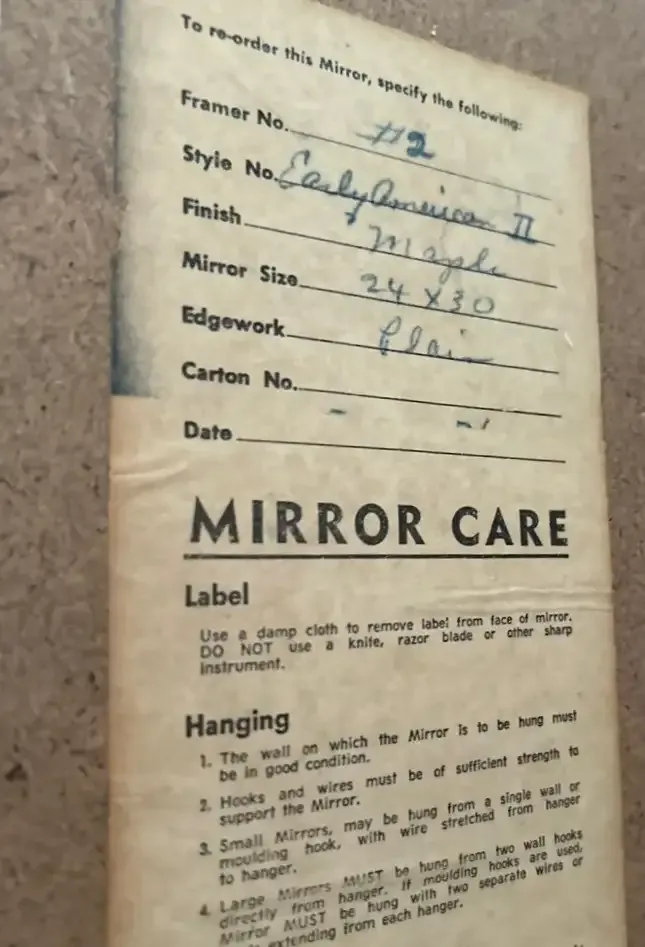 To re-order this Mirror, specify the following:
Framer No. #2
Style No. Early American II
Finish Maple
Mirror Size 24 X 30
Edgework Plain
Carton No.
Date
MIRROR CARE
Label
Use a damp cloth to remove label from face of mirror.
DO NOT use a knife, razor blade or other sharp
instrument.
Hanging
1. The wall on which the Mirror is to be hung must
be in good condition.
2. Hooks and wires must be of sufficient strength to
support the Mirror.
3. Small Mirrors, may be hung from a single wall or
moulding hook, with wire stretched from hanger
to hanger.
4. Large Mirrors MUST be hung from two wall hooks
directly from hanger. If moulding hooks are used,
Mirror MUST be hung with two separate wires or
extending from each hanger.